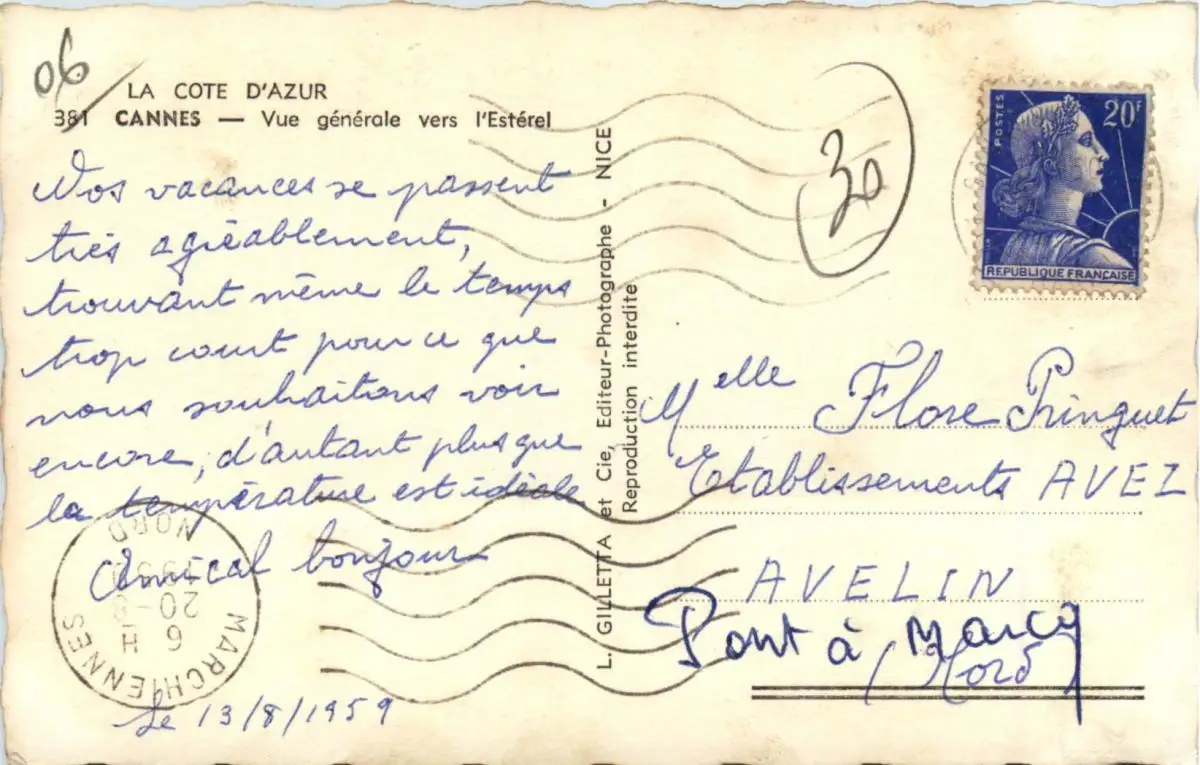 06
LA COTE D'AZUR
381 CANNES — Vue générale vers l'Estérel
Nos vacances se passent
très agréablement,
trouvant même le temps
trop court pour ce que
nous souhaitons voir
encore, d'autant plus que
la température est idéale
Amical bonjour
Le 13/8/1959
MARCHIENNES
NORD
20-8
6 H
L. GILLETTA et Cie, Editeur-Photographe - NICE
Reproduction interdite
30
POSTES
20F
REPUBLIQUE FRANÇAISE
Melle Flore Pringuet
Etablissements AVEZ
AVELIN
Pont à Marcq
(Nord)